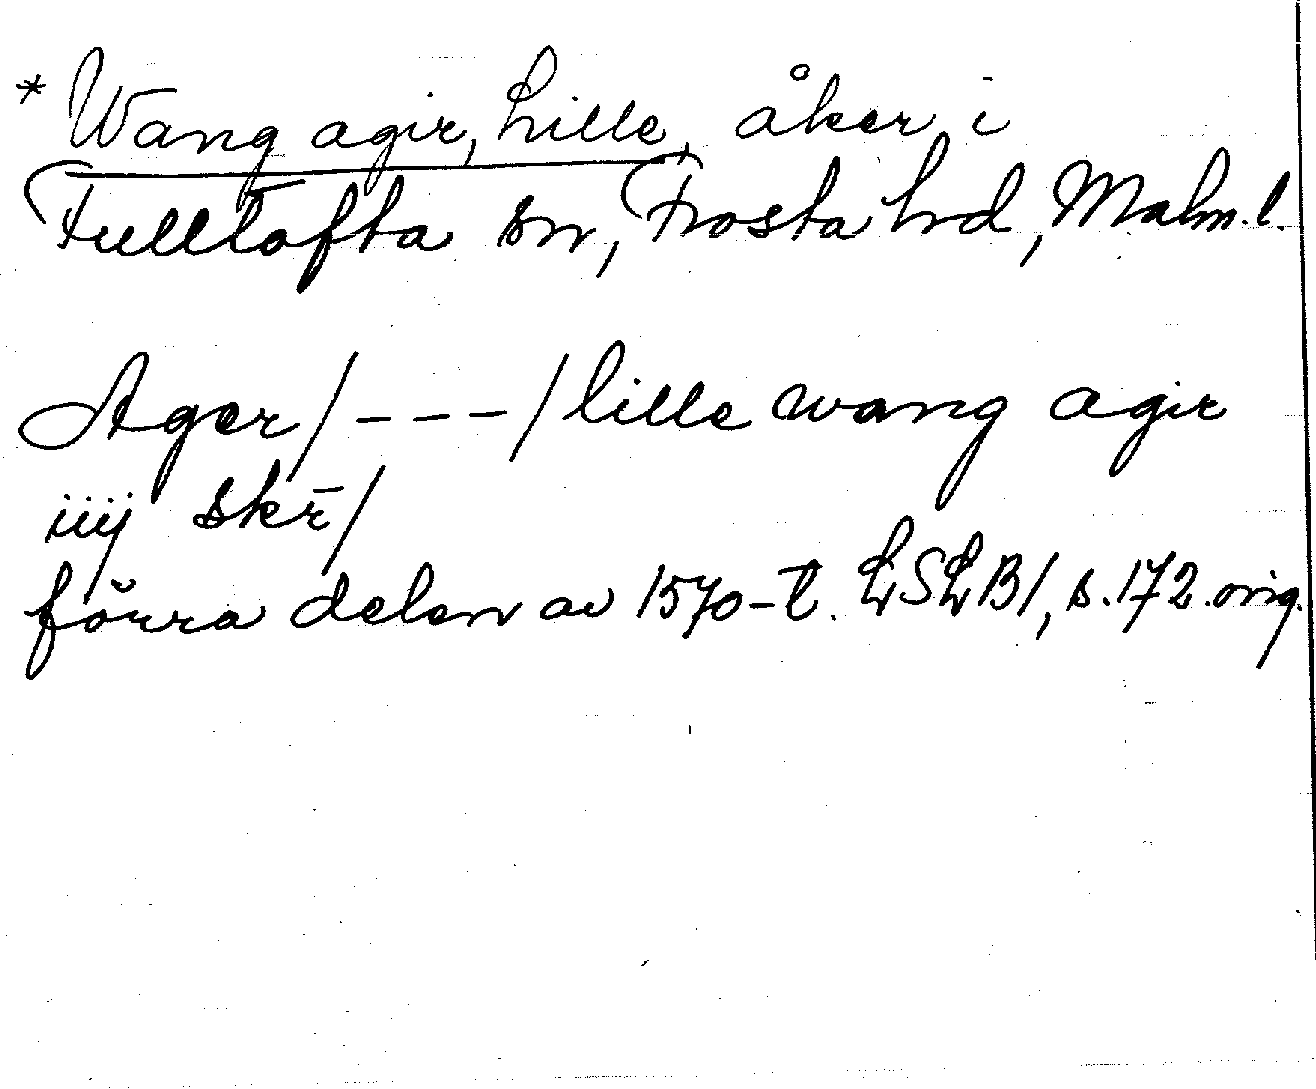 * Wang agir, Lille, åker i
Fulltofta sn, Frosta hd, Malm. l.
Ager/---/ lille wang agir
iiij skr̄/
förra delen av 1570-t. LSLB1, s. 172 orig.